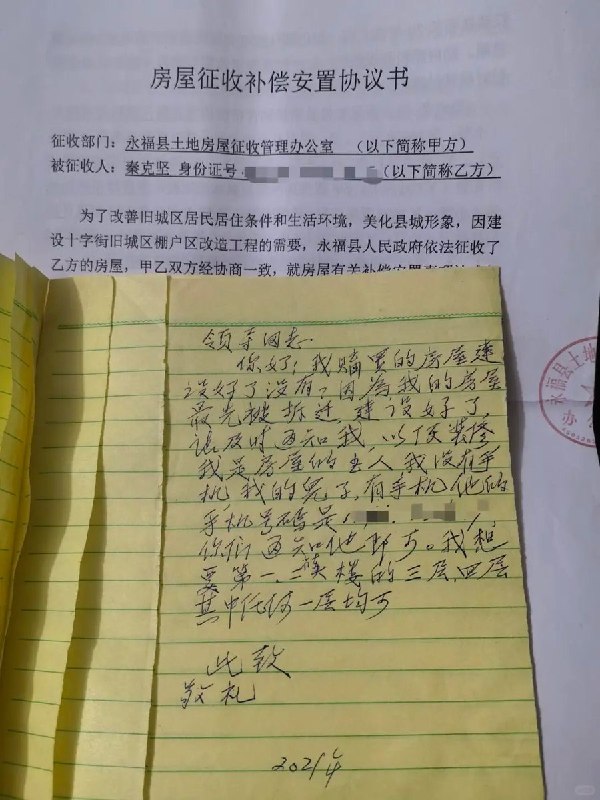 房屋征收补偿安置协议书
征收部门：永福县土地房屋征收管理办公室 （以下简称甲方）
被征收人：秦克坚 身份证号 （以下简称乙方）
为了改善旧城区居民居住条件和生活环境，美化县城形象，因建
设十字街旧城区棚户区改造工程的需要，永福县人民政府依法征收了
乙方的房屋，甲乙双方经协商一致，就房屋有关补偿安置
永福县土地
办
领导同志
你好！我购買的房屋建
设好了没有？因為我的房屋
最先被拆迁，建设好了，
请及时通知我，以便装修
我是房屋的主人我没有手
机我的儿子，有手机他的
手机号码是
你们通知他即可。我想
要第一、二 楼的三层，四层
其中任何一层均可
此致
敬礼